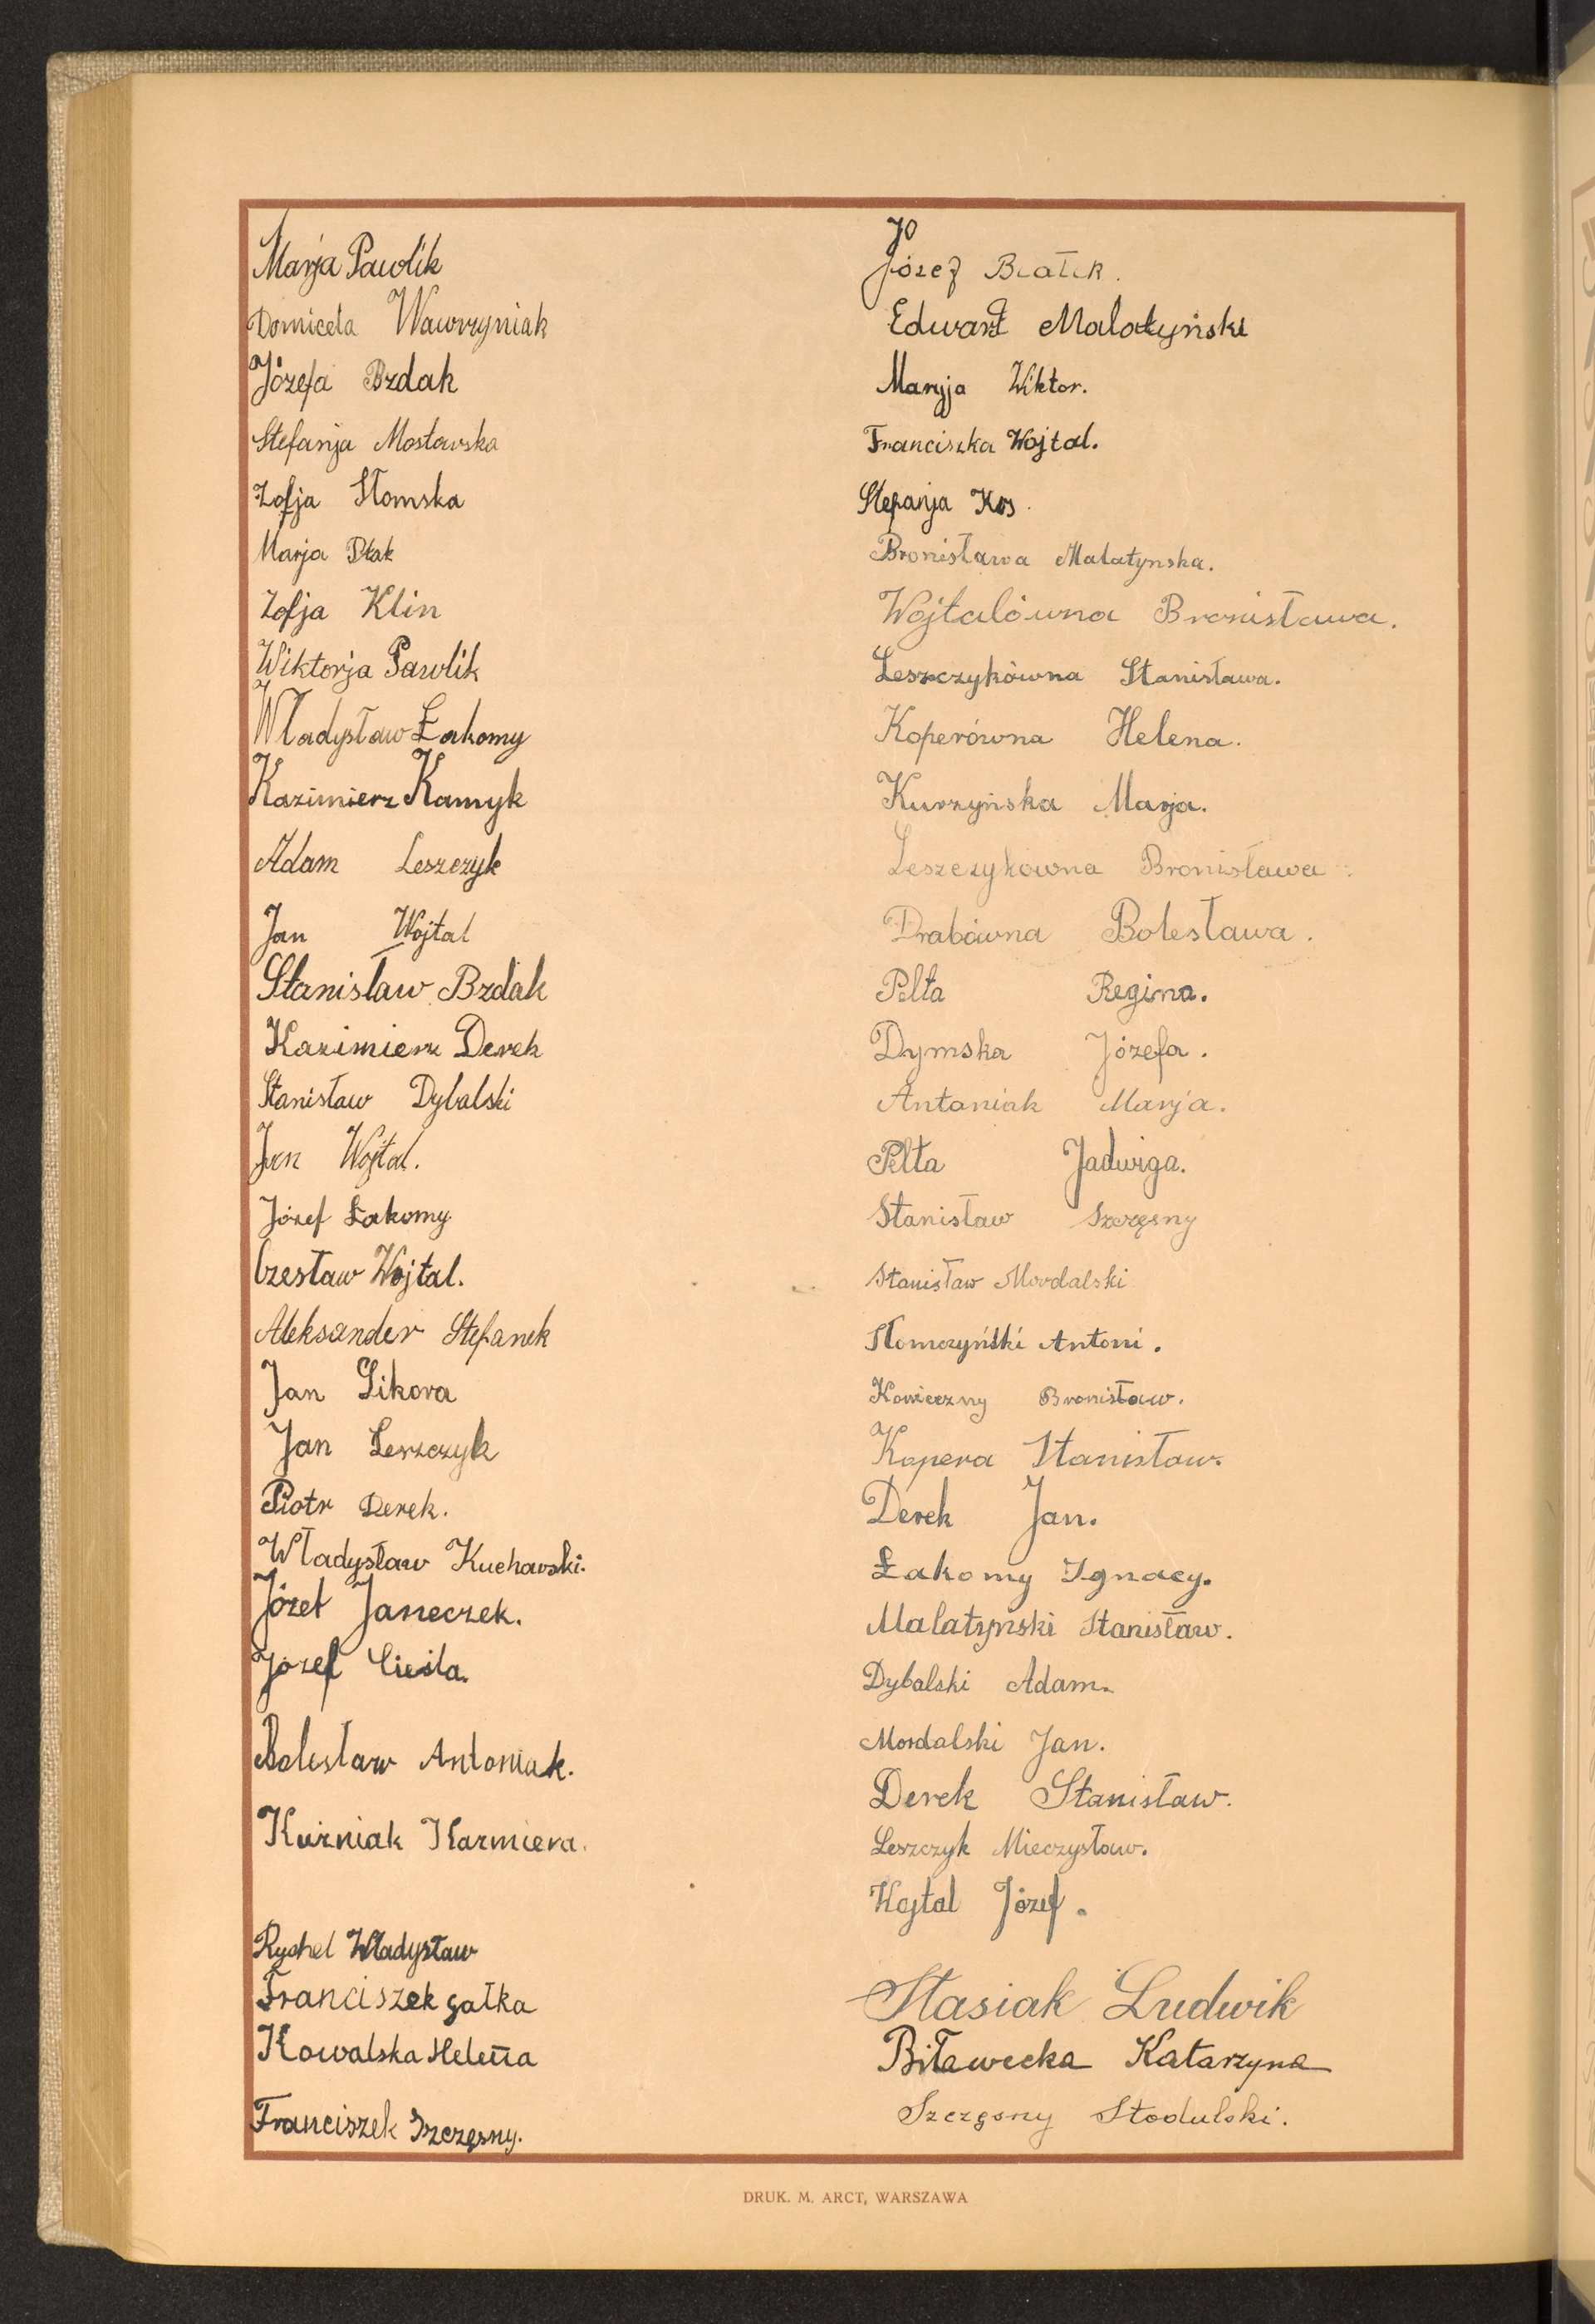 Marja Pawlik
Domicela Wawrzyniak
Józefa Bzdak
Stefanja Mosławska
Zofja Słomska
Marja Ptak
Zofja Klin
Wiktorja Pawlik
Władysław Łakomy
Kazimierz Kamyk
Adam Leszczyk
Jan Wojtal
Stanisław Bzdak
Kazimierz Derek
Stanisław Dybalski
Jan Wojtal.
Józef Łakomy
Czesław Wojtal.
Aleksander Stefanek
Jan Sikora
Jan Leszczyk
Piotr Derek.
Władysław Kucharski.
Józef Janeczek.
Józef Cieśla.
Bolesław Antoniak.
Kuźniak Kazmiera.
Rychel Władysław
Franciszek gałka
Kowalska Helena
Franciszek Szczęsny.
Jó
Józef Białek.
Edward Malatyński
Maryja Wiktor.
Franciszka Wojtal.
Stefanja Kos.
Bronisława Malatynska.
Wojtalówna Bronisława.
Leszczykówna Stanisława.
Koperówna Helena.
Kurzyńska Marja.
Leszczykówna Bronisława.
Drabówna Bolesława.
Pelta Regina.
Dymska Józefa.
Antaniak Marja.
Pelta Jadwiga.
Stanisław Szczęsny
Stanisław Mordalski
Słomczyński Antoni.
Konieczny Bronisław.
Kopera Stanisław.
Derek Jan.
Łakomy Ignacy.
Malatyński Stanisław.
Dybalski Adam.
Mordalski Jan.
Derek Stanisław.
Leszczyk Mieczysław.
Wojtal Józef.
Stasiak Ludwik
Biławecka Katarzyna
Szczęsny Stodulski.
DRUK. M. ARCT, WARSZAWA